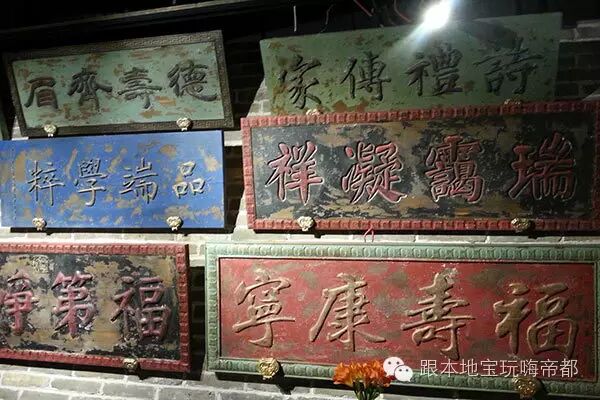 德壽齊眉
詩禮傳家
品端學粹
瑞靄凝祥
福第
福壽康寧
跟本地宝玩嗨帝都